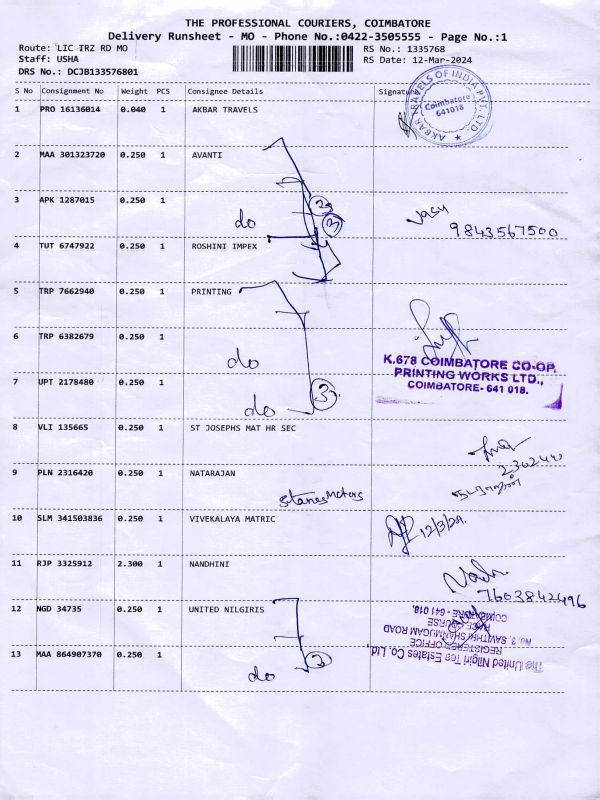 THE PROFESSIONAL COURIERS, COIMBATORE
Delivery Runsheet - MO - Phone No.:0422-3505555 - Page No.:1
Route: LIC IRZ RD MO RS No.: 1335768
Staff: USHA RS Date: 12-Mar-2024
DRS No.: DCJB133576801
S No Consignment No Weight PCS Consignee Details Signature
1 PRO 16136014 0.040 1 AKBAR TRAVELS
AKBAR TRAVELS OF INDIA PVT. LTD
Coimbatore
641018
2 MAA 301323720 0.250 1 AVANTI
3 APK 1287015 0.250 1
do
9843567500
4 TUT 6747922 0.250 1 ROSHINI IMPEX
5 TRP 7662940 0.250 1 PRINTING
6 TRP 6382679 0.250 1
do
K.678 COIMBATORE CO-OP.
PRINTING WORKS LTD.,
COIMBATORE- 641 018.
7 UPT 2178480 0.250 1
do 3
8 VLI 135665 0.250 1 ST JOSEPHS MAT HR SEC
9 PLN 2316420 0.250 1 NATARAJAN
Stanes Motors
10 SLM 341503836 0.250 1 VIVEKALAYA MATRIC
12/3/24.
11 RJP 3325912 2.300 1 NANDHINI
7603842496
12 NGD 34735 0.250 1 UNITED NILGIRIS
The United Nilgiri Tea Estates Co. Ltd.,
REGISTERED OFFICE
No. 3, SAVITHRI SHANMUGAM ROAD
RACE COURSE
COIMBATORE - 641 018.
13 MAA 864907370 0.250 1
do 2